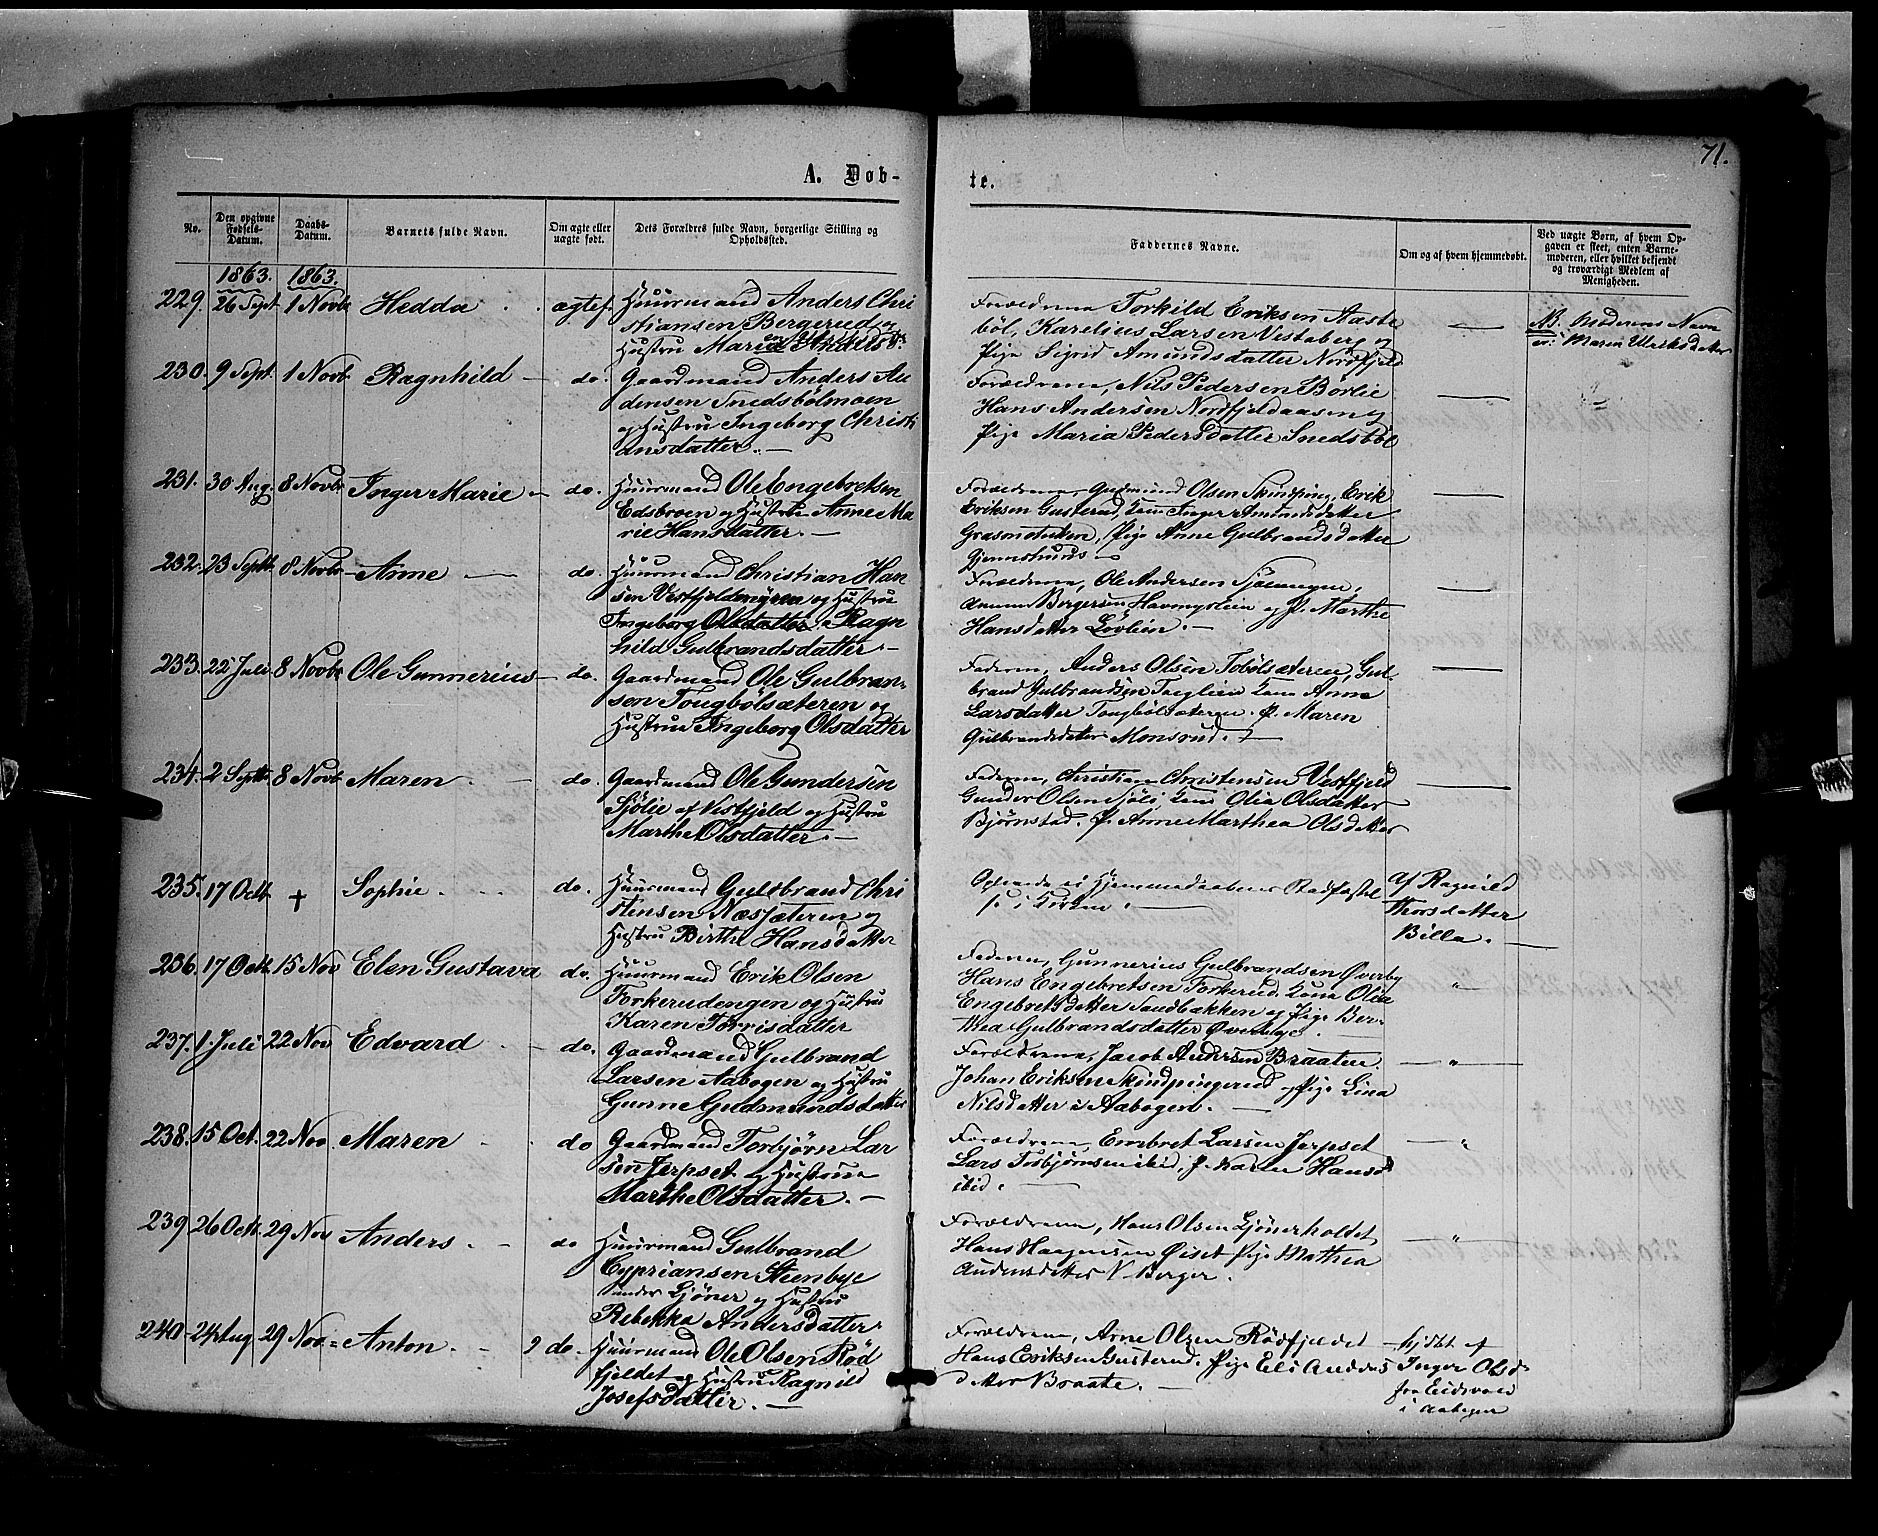 71.
A. Døb-
te.
No.
Den opgivne Fødsels-Datum.
Daabs-Datum.
Barnets fulde Navn.
Om ægte eller uægte født.
Dets Forældres fulde Navn, borgerlige Stilling og Opholdssted.
Faddernes Navne.
Om og af hvem hjemmedøbt.
Ved uægte Børn, af hvem Opgaven er skeet, enten Barnemoderen, eller hvilket bekjendt og troværdigt Medlem af Menigheden.
1863. 1863.
229. 26 Sept 1 Novbr Hedda ægtef. Huurmand Anders Chri
stiansen Bergerud og
Hustru Maria
Forældrene Torkild Eriksen Aaste
böl, Karelius Larsen Vestaberg og
Pige Sigrid Amundsdatter Nordfjeld
NB. Moderens Navn
er: Maren
230. 9 Sept. 1 Novb. Ragnhild do. Gaardmand Anders Au
densen Snedsbölmoen
og Hustru Ingeborg Christi
ansdatter.
Forældrene, Nils Pedersen Börlie
Hans Andersen Nordfjeldaasen og
Pige Maria Pedersdatter Snedsböl
231. 30 Aug. 8 Novbr Inger Marie do. Huurmand Ole Engebretsen
Edsbroen og Hustru Anne Ma
rie Hansdatter.
Forældrene, Gudmund Olsen Skindping, Erik
Eriksen Gusterud, Kone Inger Amundsdatter
Pige Anne Gulbrandsdatter
232. 23 Septb. 8 Novbr Anne do. Huurmand Christian Han
sen Vestfjeldmyren og Hustru
Ingeborg Olsdatter Ragn
hild Gulbrandsdatter.
Forældrene, Ole Andersen
Hansdatter Lövlien.
233. 22 Juli 8 Novbr Ole Gunnerius do. Gaardmand Ole Gulbran-
sen Tougbölsæteren og
Hustru Ingeborg Olsdatter
Faderen, Anders Olsen Tobölsæteren, Gul-
brand Gulbrandsen Kone Anne
Larsdatter Tougbölsæteren. P. Maren
Gulbrandsdatter Monsrud.
234. 2 Septb. 8 Novb. Maren do. Gaardmand Ole Gundersen
Sjölie af Vestfjeld og Hustru
Marthe Olsdatter.
Faderen, Christian Christensen Vestfjeld
Gunder Olsen Sjöli, Kone Olia Olsdatter
Björnstad. P. Anne Marthea Olsdatter
235. 17 Octb. + Sophie do. Huurmand Gulbrand Chri
stensen Næssæteren og
Hustru Birthe Hansdatter
Hjemmedaaben Stadfæstel
se i Kirken.
Af Ragnild
Thorsdatter
Billa.
236. 17 Octb. 15 Nov Elen Gustava do. Huurmand Erik Olsen
Torkerudengen og Hustru
Karen Torrisdatter
Faderen, Gunnerius Gulbrandsen Överby
Hans Engebretsen Torkerud. Kone Olia
Engebretsdatter Sandbakken og Pige Ber-
thea Gulbrandsdatter Överbye.
237. 1 Juli 22 Nov Edvard do. Gaardmand Gulbrand
Larsen Aabogen og Hustru
Gunne Guldmundsdatter
Forældrene, Jacob Andersen Braaten.
Johan Eriksen Skindpingrud Pige Lina
Nilsdatter i Aabogen.
238. 15 Oct. 22 Nov. Maren do Gaardmand Torbjørn Lar
sen Jerpset og Hustrue
Marthe Olsdatter.
Forældrene, Embret Larsen Jerpset
Lars Torbjörnsen ibid, P. Karen Hansd
ibid.
239 26 Octb. 29 Nov Anders do Huurmand Gulbrand
Cypriansen Steenbye
under Gjöner og Hustru
Rebekka Andersdatter
Forældrene, Hans Olsen Gjönerholdet
Hans Haagensen Öiset Pige Mathea
Audensdatter N. Berger.
240. 24 Aug. 29 Nov Anton do. Huurmand Ole Olsen Röd
fjeldet og Hustru Ragnild
Josefsdatter.
Forældrene, Arne Olsen Rödfjeldet
Hans Eriksen Gusterud. Pige Eli Anders
datter Braate.
Hjdbt af
Inger Olsd
fra Eidsvold
i Aabogen